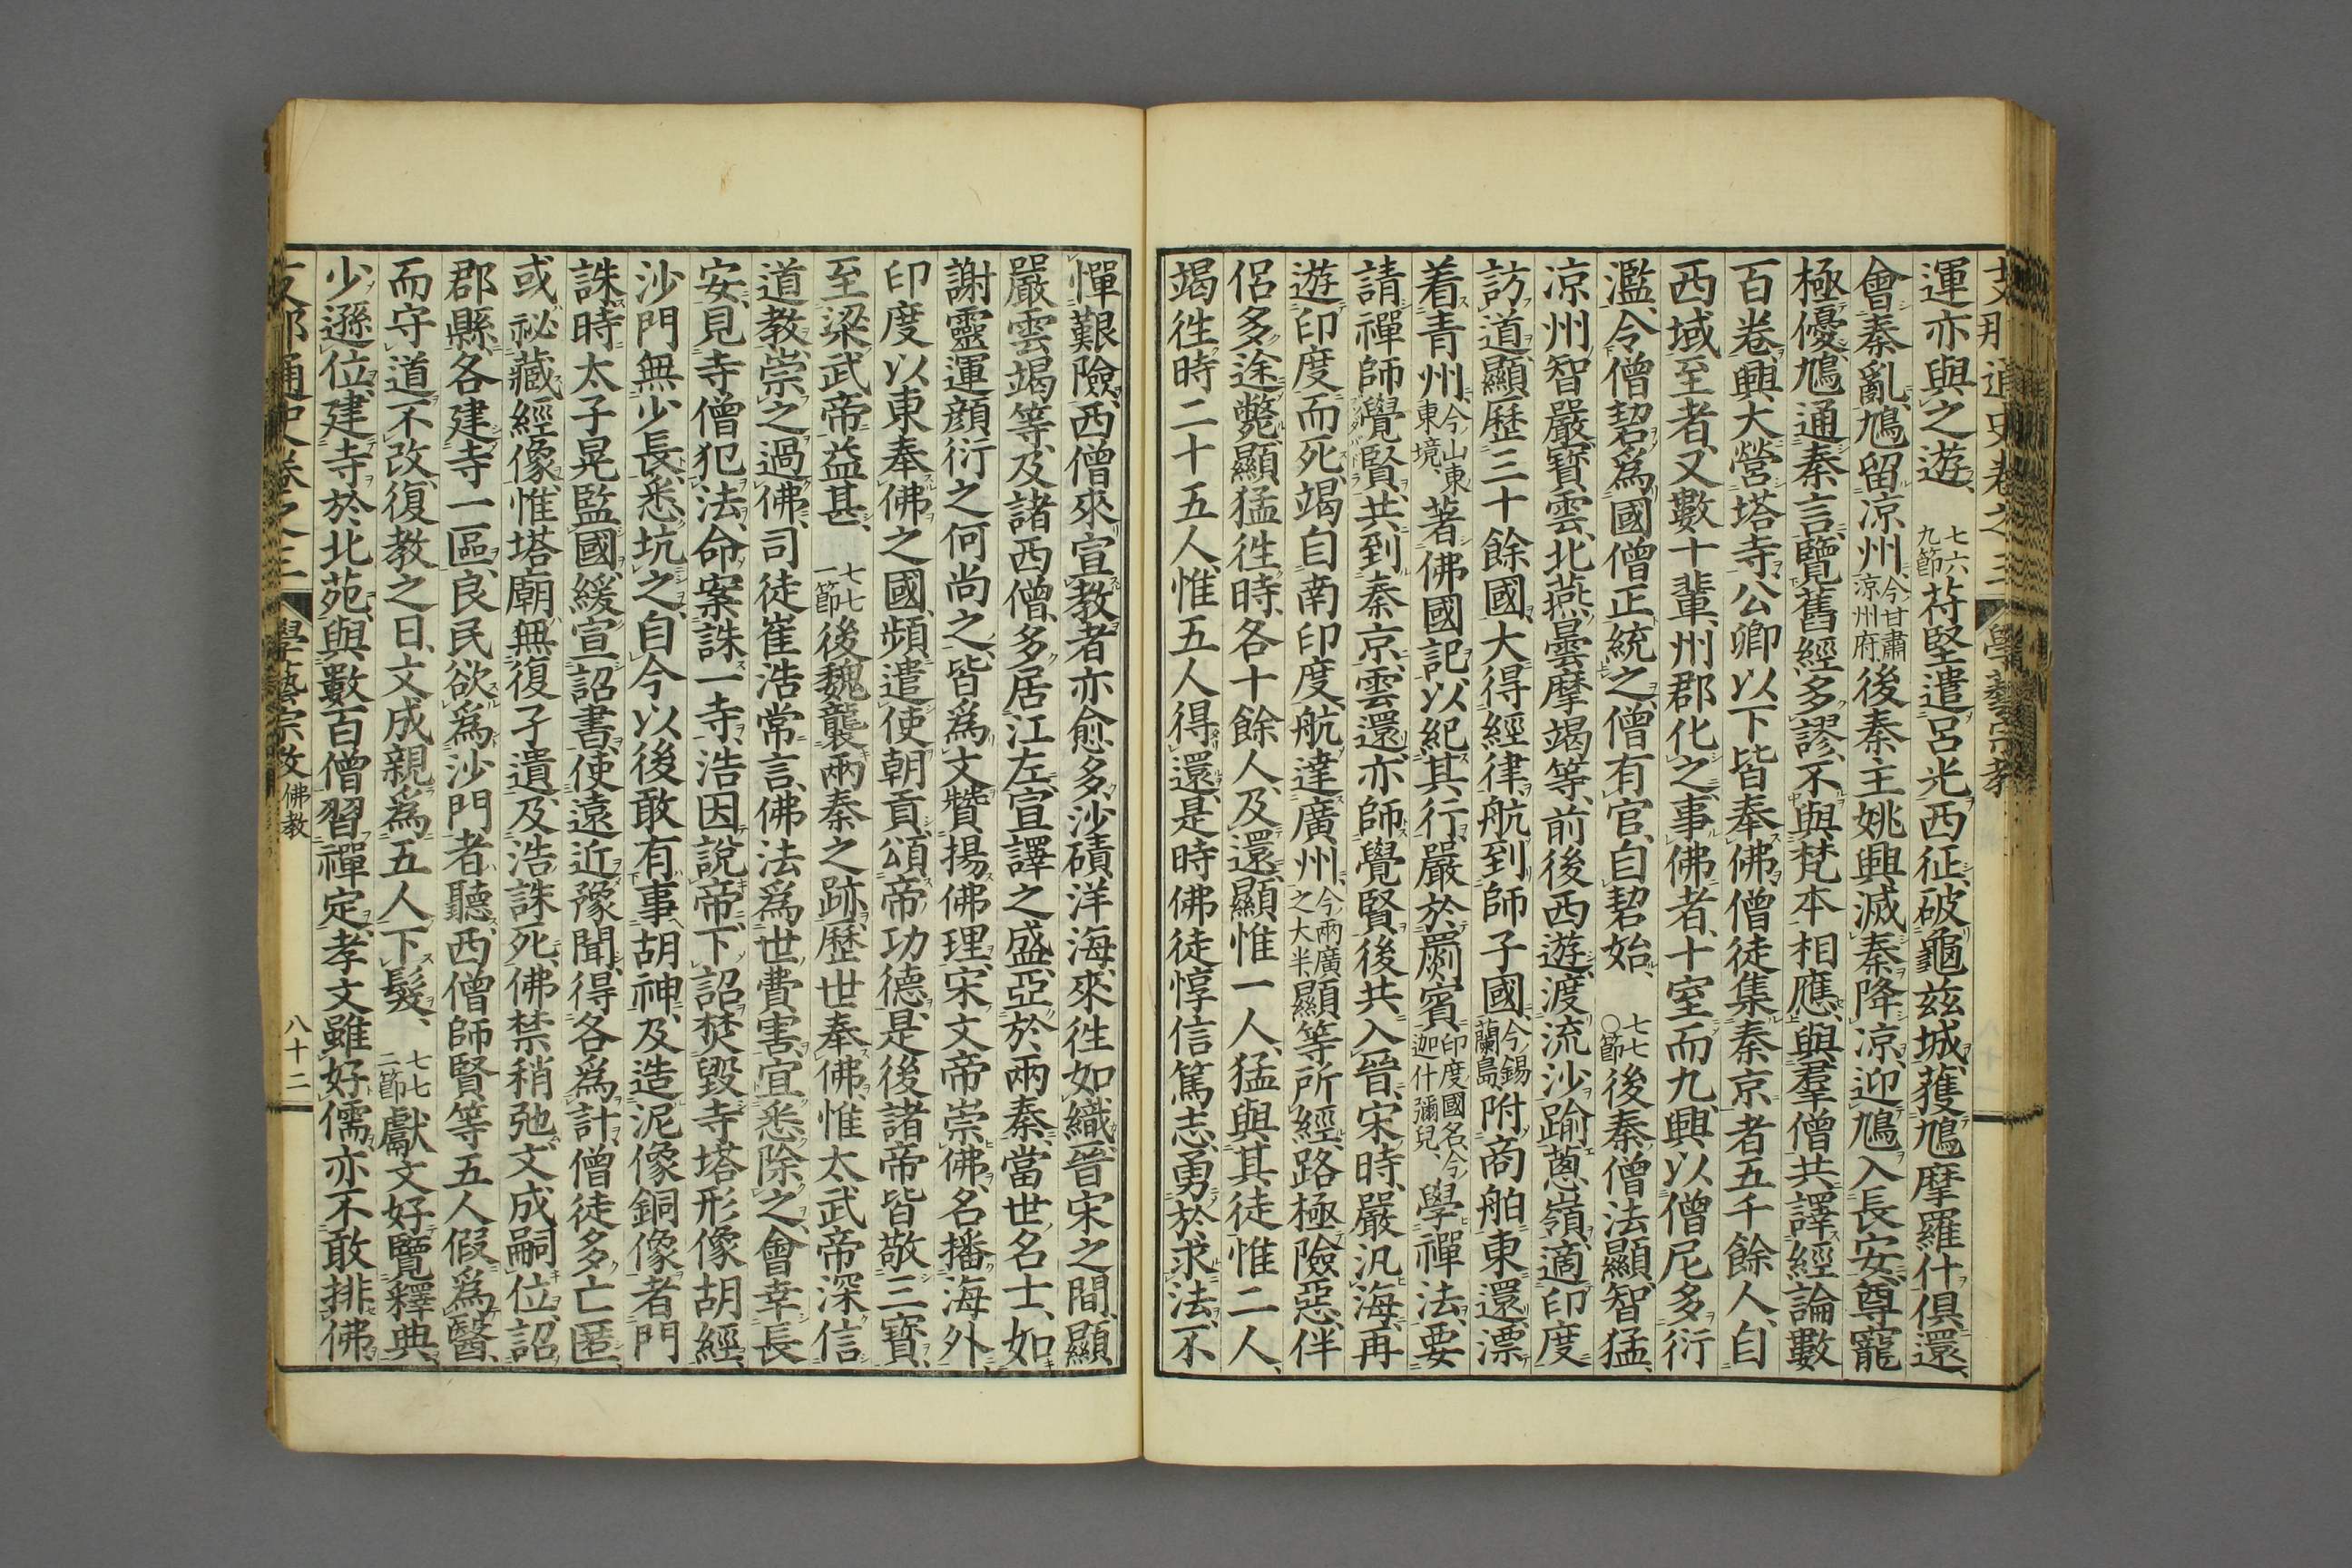 支那通史卷之三 學藝宗教
運亦與之遊、七六九節苻堅遣呂光西征、破龜茲城、獲鳩摩羅什俱還、
會秦亂、鳩留涼州、今甘肅涼州府、後秦主姚興、滅秦降涼、迎鳩入長安、尊寵
極優、鳩通秦言、覽舊經多謬、不與梵本相應、與羣僧共譯經論數
百卷、興大營塔寺、公卿以下皆奉佛、僧徒集秦京者五千餘人、自
西域至者、又數十輩、州郡化之、事佛者、十室而九、興以僧尼多衍
濫、令僧䂮爲國僧正統之、僧有官、自䂮始、七七〇節後秦僧法顯、智猛、
涼州智嚴、寶雲、北燕曇摩竭等、前後西遊、渡流沙、踰蔥嶺、適印度
訪道、顯歷三十餘國、大得經律、航到師子國、今ノ錫蘭島、附商舶東還、漂
着青州、今ノ山東東境、著佛國記、以紀其行、嚴於罽賓、印度國名、今ノ迦什彌兒、學禪法、要
請禪師覺賢、共到秦京、雲還亦師覺賢、後共入晉、宋時、嚴汎海、再
遊印度而死、竭自南印度、航達廣州、今ノ兩廣之大半、顯等所經、路極險惡、伴
侶多途斃、顯猛徃時、各十餘人、及還、顯惟一人、猛與其徒惟二人、
竭徃時二十五人、惟五人得還、是時佛徒惇信篤志、勇於求法、不
憚艱險、西僧來宣教者亦愈多、沙磧洋海、來徃如織、晉宋之間、顯
嚴雲竭等、及諸西僧、多居江左、宣譯之盛、亞於兩秦、當世名士、如
謝靈運顏衍之何尚之、皆爲文贊揚佛理、宋文帝崇佛、名播海外
印度以東奉佛之國、頻遣使朝貢、頌帝功德、是後諸帝皆敬三寶、
至梁武帝益甚、七七一節後魏襲兩秦之跡、歷世奉佛、惟太武帝深信
道教、崇之過佛、司徒崔浩常言、佛法爲世費害、宜悉除之、會幸長
安、見寺僧犯法、命案誅一寺、浩因說帝、下詔焚毀寺塔形像胡經、
沙門無少長、悉坑之、自今以後敢有事胡神、及造泥像銅像者門
誅、時太子晃監國、緩宣詔書、使遠近豫聞、得各爲計、僧徒多亡匿、
或祕藏經像、惟塔廟無復孑遺、及浩誅死、佛禁稍弛、文成嗣位、詔
郡縣、各建寺一區、良民欲爲沙門者聽、西僧師賢等五人假爲醫、
而守道不改、復教之日、文成親爲五人下髮、七七二節獻文好覽釋典、
少遜位、建寺於北苑、與數百僧習禪定、孝文雖好儒、亦不敢排佛
支那通史卷之三 學藝宗教 佛教 八十二